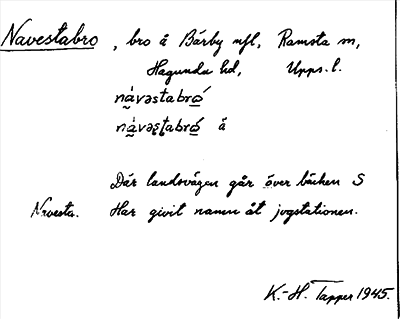 Navestabro, bro å Bärby nfl, Ramsta sn,
Hagunda hd, Upps. l.
nàvəstabró
nàvəs̨t̨abró å
Där landsvägen går över bäcken S
Navesta. Har givit namn åt jvgstationen.
K.-H. Tapper 1945.